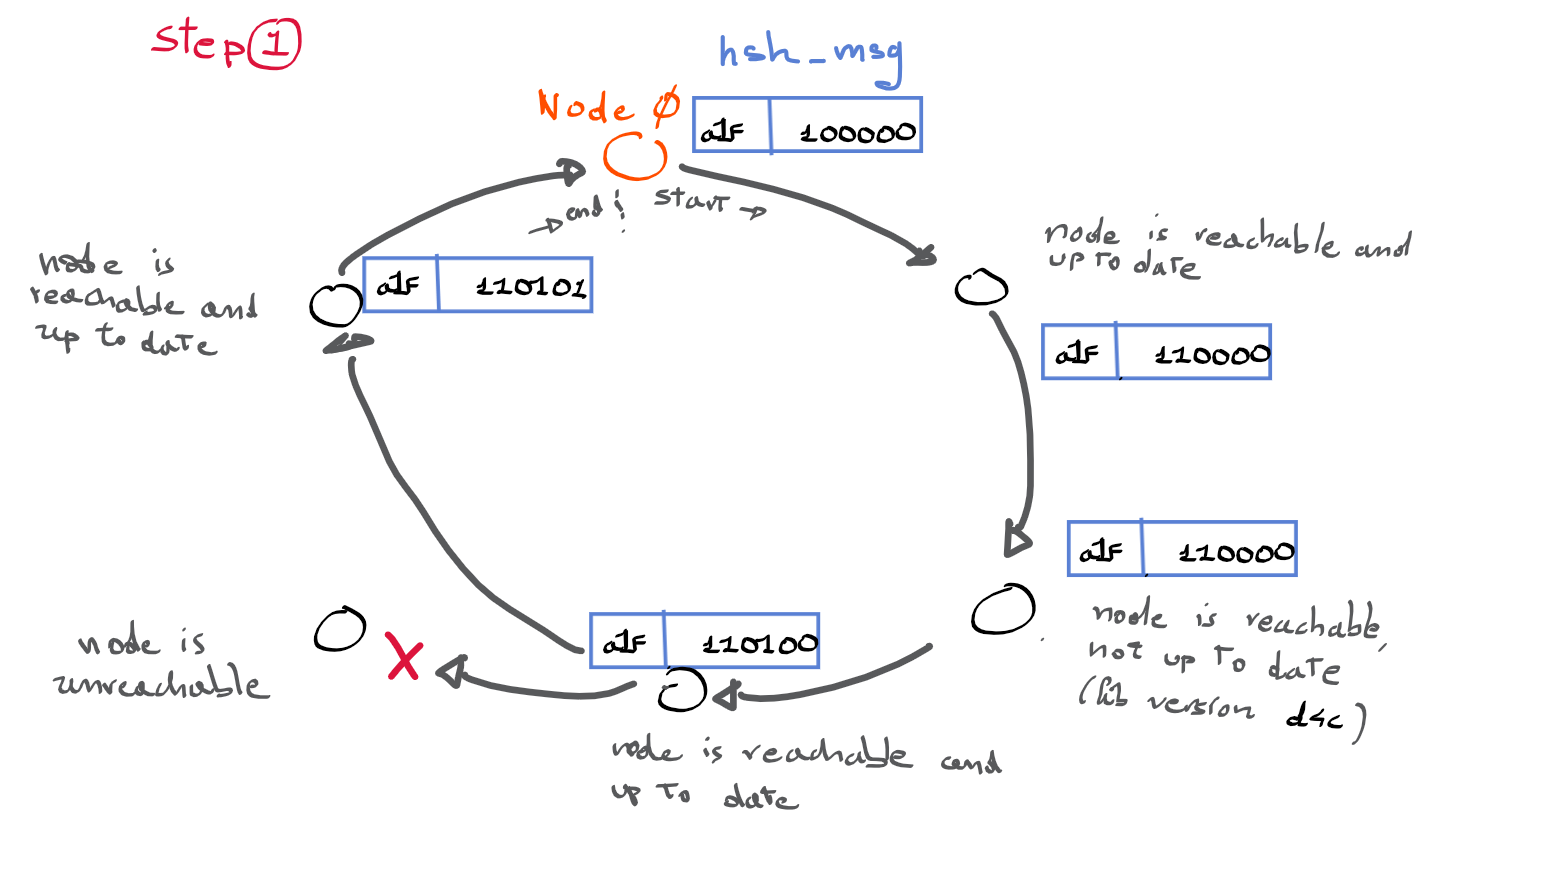 step 1
hsh_msg
Node 0
a1F 100000
→ end !
start →
node is reachable and
up to date
a1F 110000
a1F 110000
node is reachable,
not up to date
(lib version d4c)
a1F 110100
node is reachable and
up to date
node is
unreachable
node is
reachable and
up to date
a1F 110101